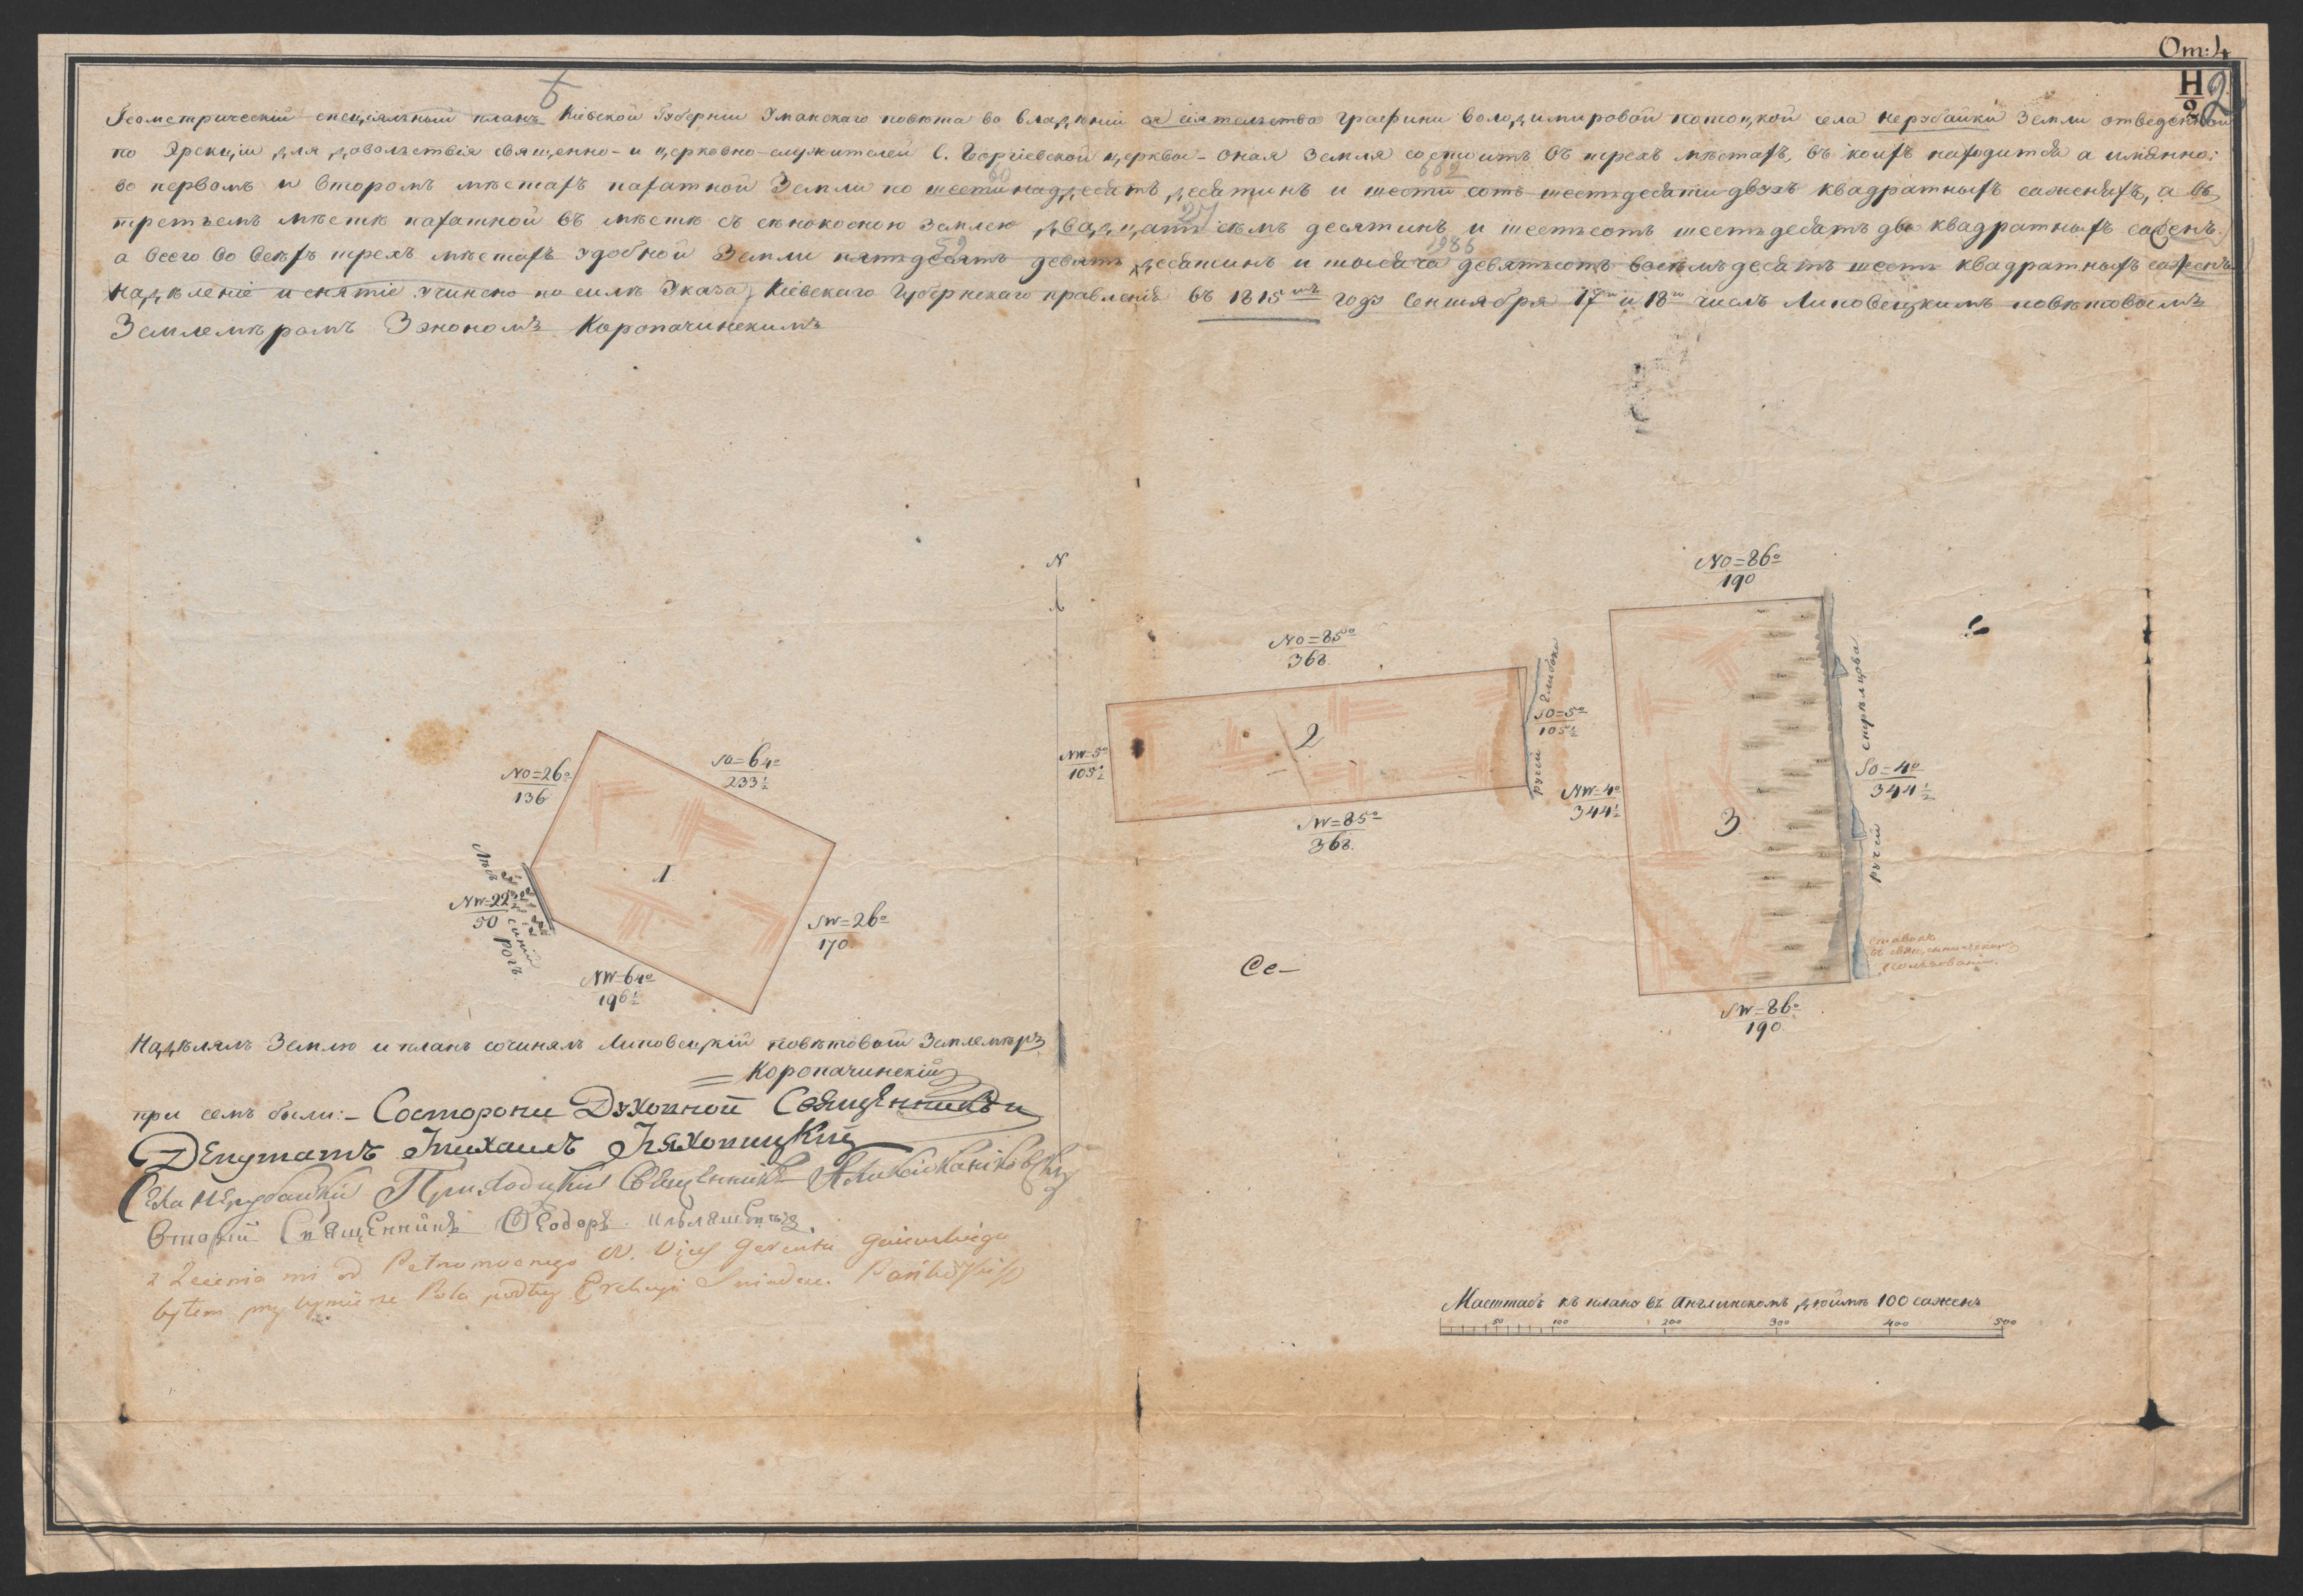 От: 4
Н 2
2
Б
Геометрическій спеціяльный планъ Кіевской Губерніи Уманскаго повѣта во владѣніи ея сіятельства Графини Володимировой потоцкой села Нерубайки Земли отведенной
по Эрекціи для довольствія священно- и церковно-служителей С. Георгіевской церквы - оная Земля состоитъ въ трехъ мѣстахъ, въ коихъ находится а имянно:
во первомъ и второмъ мѣстахъ пахатной Земли по шестинадцесятъ десятинъ и шести сотъ шестьдесятидвухъ квадратныхъ саженяхъ, а въ
третьемъ мѣстѣ пахатной въ мѣстѣ съ сѣнокосною Землею двадцать семъ десятинъ и шестьсотъ шестьдесятъ две квадратныхъ сажень.
а всего во всѣхъ трехъ мѣстахъ удобной Земли пятьдесятъ девять десятинъ и тысяча девятьсотъ восемъдесятъ шесть квадратныхъ сажень
Надѣленіе и снятіе учинено по силѣ Указа Кіевскаго Губернскаго правленія въ 1815мъ году Сентября 17го и 18го числъ Липовецкимъ повѣтовымъ
Землемѣромъ Коропачинскимъ
662
27
59
1986
N
NO=86º
190
NO=85º
368.
ручій Глибока
SO=5º
105½
NW=5º
105½
2
SW=85º
368.
NW=4º
344½
3
SO=4º
344½
ручій стрѣльцова
SW=86º
190
NO=26º
136
SO=64º
233½
1
Лѣсъ синій рогъ
NW=22º
50
SW=26º
170
NW=64º
196½
Се-
Надѣлялъ Землю и планъ сочинялъ Липовецкій повѣтовый Землемѣръ
Коропачинскій
при семъ были:- Состороны Духовной Священникъ и
Депутатъ Михаилъ
Села Нерубайки Приходскій Священникъ
Вторый Священникъ Ѳеодоръ
z Zlecenia mi od
bytem przy
Масштабъ къ плану въ Англинскомъ дюймѣ 100 сажень
50 100 200 300 400 500